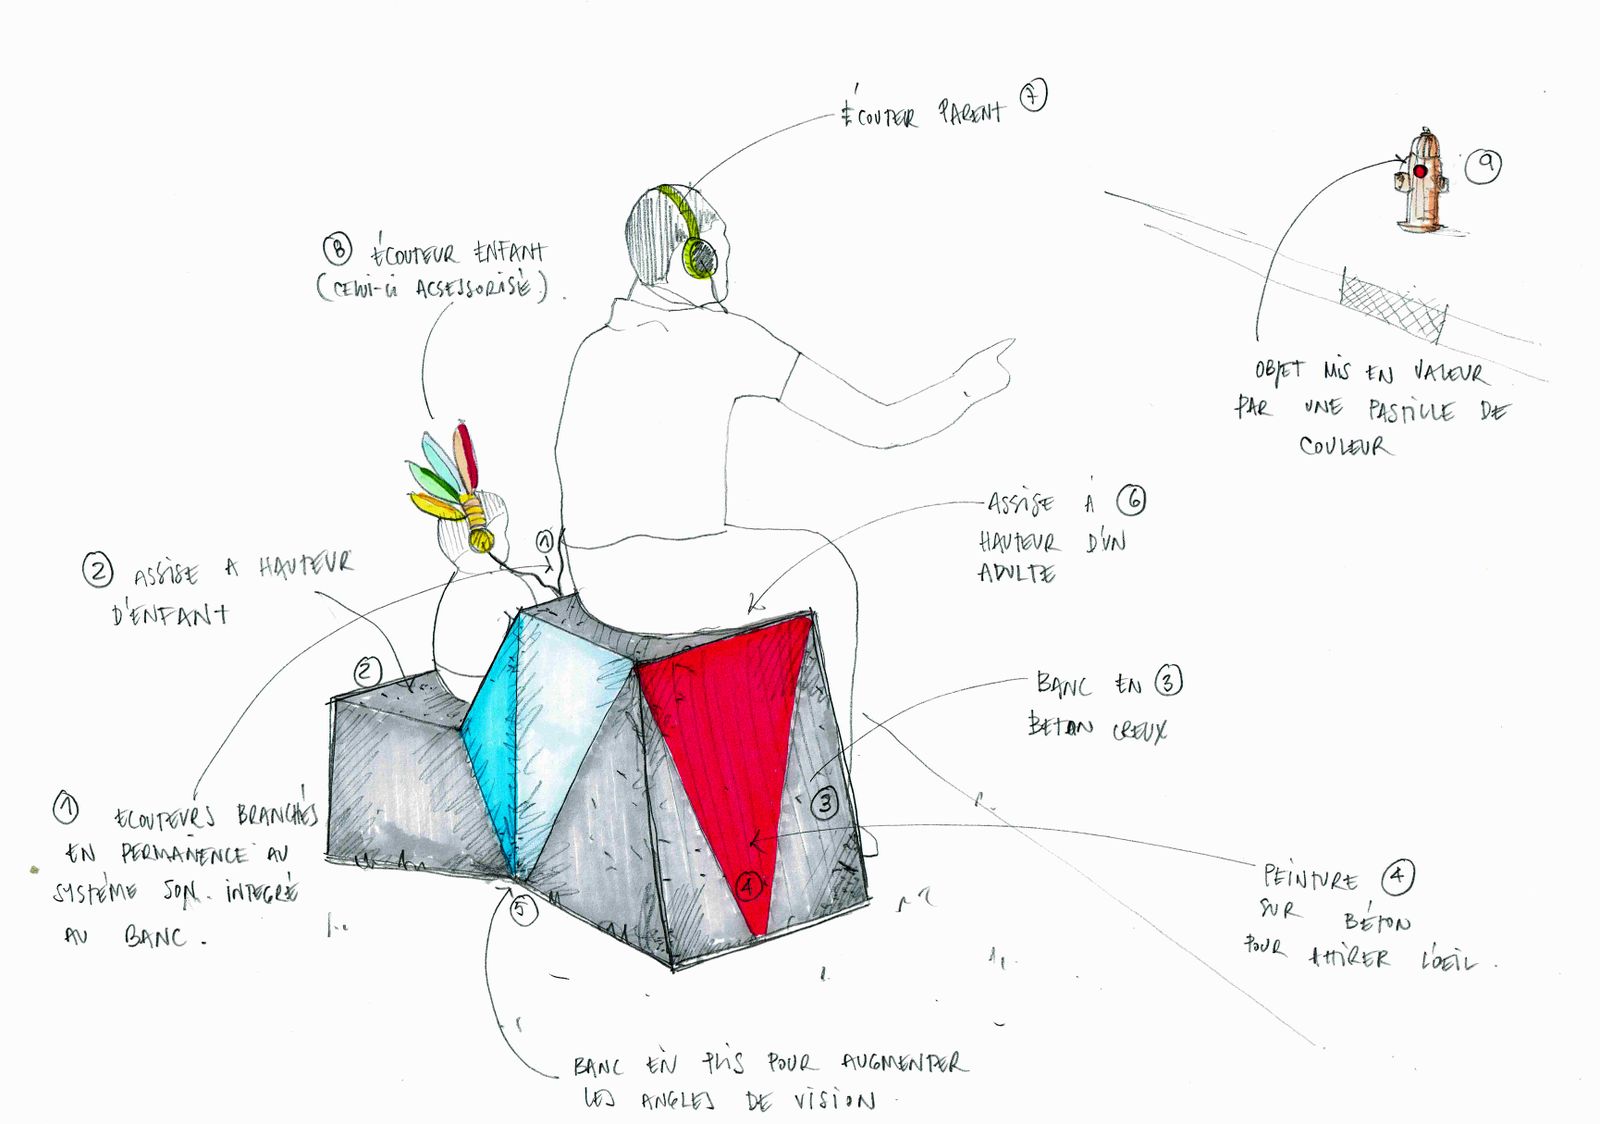 ÉCOUTER PARENT 7
9
8 ÉCOUTEUR ENFANT
(CELUI-CI ACSESSORISÉ).
OBJET MIS EN VALEUR
PAR UNE PASTILLE DE
COULEUR
ASSISE À 6
HAUTEUR D'UN
ADULTE
1
2 ASSISE A HAUTEUR
D'ENFANT
2
BANC EN 3
BETON CREUX
3
1 ECOUTEURS BRANCHÉS
EN PERMANENCE AU
SYSTÉME SON. INTEGRÉ
AU BANC.
4
5
PEINTURE 4
SUR BÉTON
POUR ATTIRER L'OEIL.
BANC EN PLIS POUR AUGMENTER
LES ANGLES DE VISION.